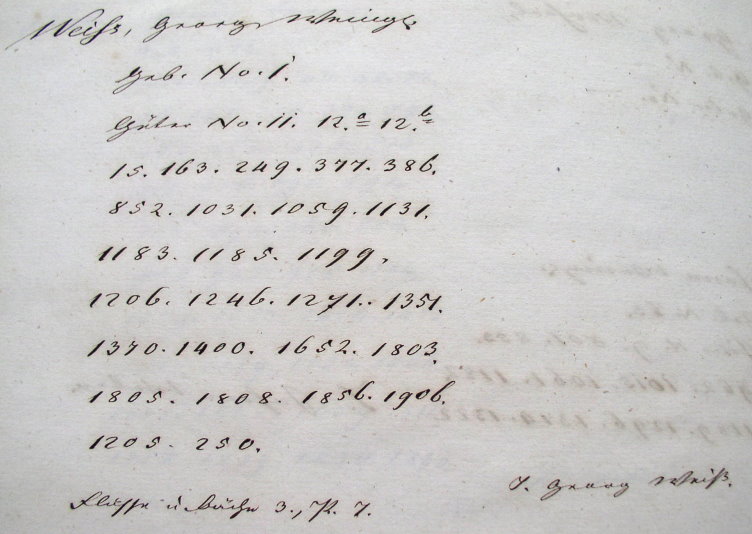 Weiss, Georg, Weing
Geb. No. 1.
Güter No. 11. 12.a 12.b
15. 163. 249. 377. 386.
852. 1031. 1059. 1131.
1183. 1185. 1199.
1206. 1246. 1271. 1351.
1370. 1400. 1652. 1803.
1805. 1808. 1856. 1906.
1205. 250.
Flüsse u Bäche 3., P. 7.
J. Georg Weiß.